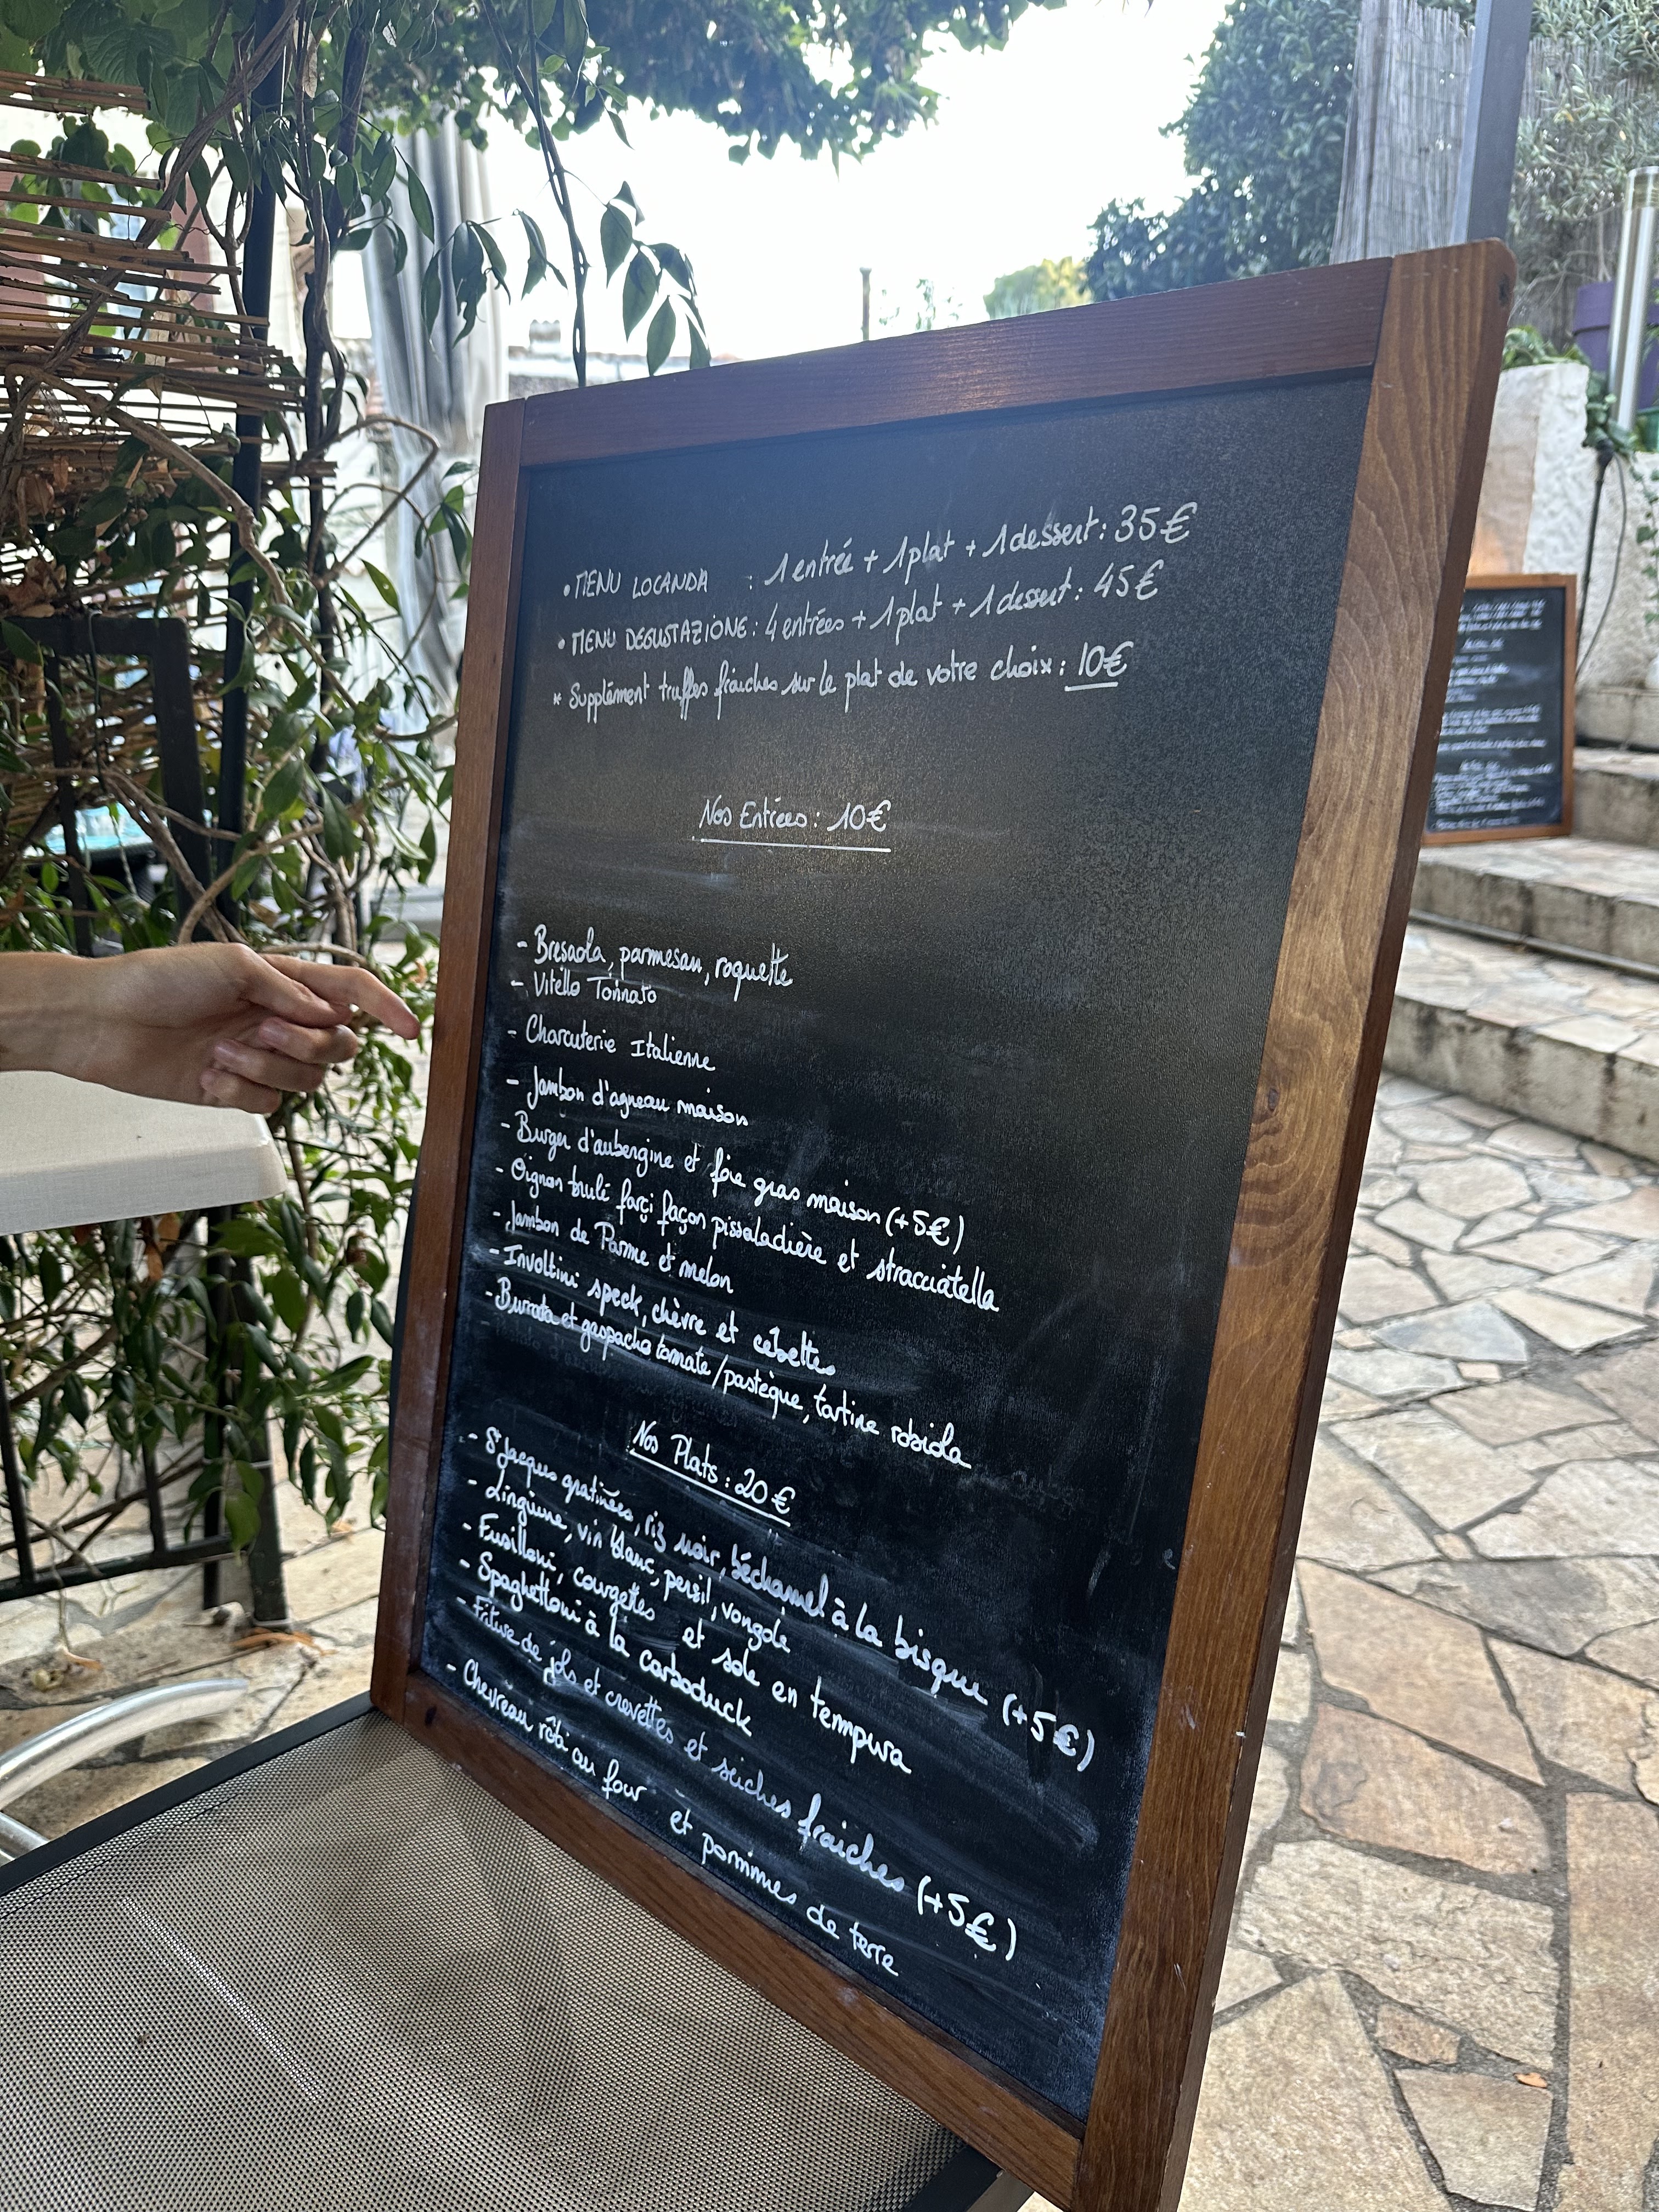 • MENU LOCANDA : 1 entrée + 1 plat + 1 dessert : 35€
• MENU DEGUSTAZIONE : 4 entrées + 1 plat + 1 dessert : 45€
* Supplément truffes fraiches sur le plat de votre choix : 10€
Nos Entrées : 10€
- Bresaola, parmesan, roquette
- Vitello Tonnato
- Charcuterie Italienne
- Jambon d'agneau maison
- Burger d'aubergine et foie gras maison (+5€)
- Oignon brulé farçi façon pissaladière et stracciatella
- Jambon de Parme et melon
- Involtini speck, chèvre et cébettes
- Burrata et gaspacho tomate/pastèque, tartine robiola
Nos Plats : 20€
- St Jacques gratinées, riz noir, béchamel à la bisque (+5€)
- Linguine, vin blanc, persil, vongole
- Fusilloni, courgettes et sole en tempura
- Spaghettoni à la carboduck
- Friture de jols et crevettes et seiches fraiches (+5€)
- Chevreau rôti au four et pommes de terre